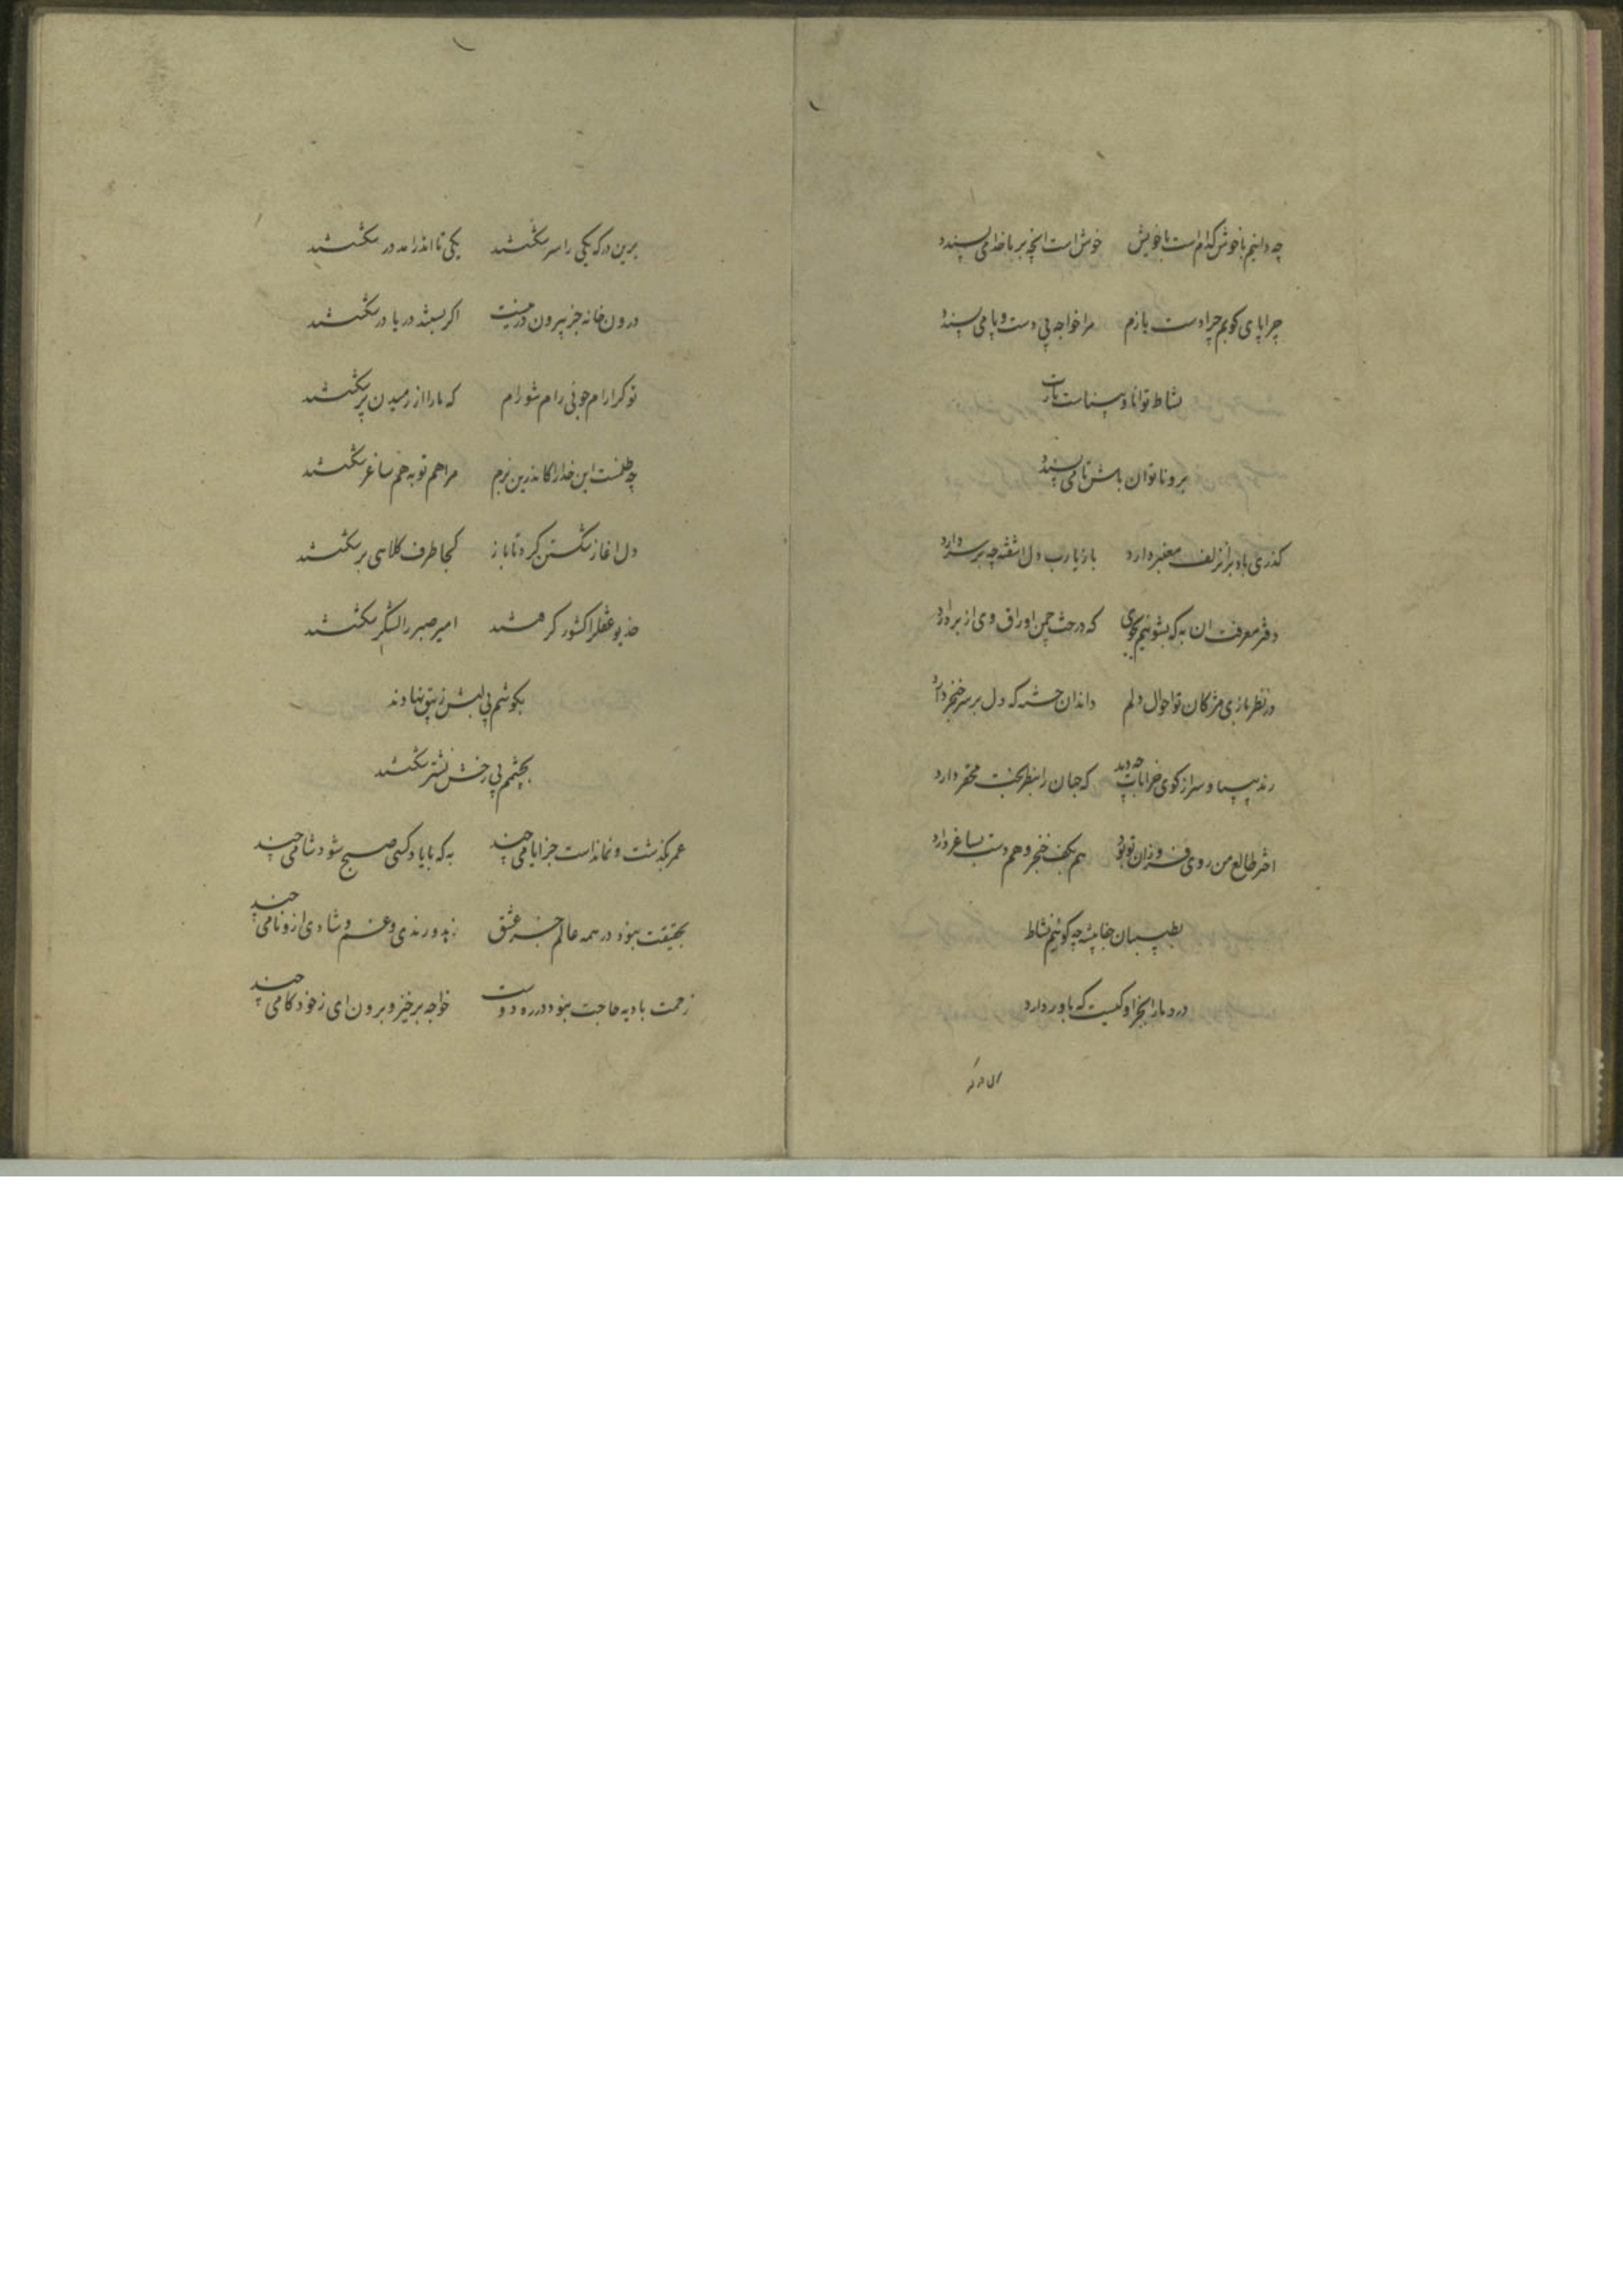 چه دانیم ناخوش کدام است یا خویش خوش است انچه بر ما خدا می‌پسندد
چرا پای کوبم چرا دست یازم مرا خواجه بی دست و پا می پسندد
نشاط توانا و بیناست یارت
برو ناتوان باش تا می پسندد
کذری باد بر ان زلف معنبر دارد باز یا رب دل اشفته چه بر سر دارد
دفتر معرفت ان به که بشوئیم بجوی که درخت چمن اوراق وی از بر دارد
در نظر بازی مژکان تو احوال دلم داند ان خسته که دل بر سر خنجر دارد
رند بی پا و سر از کوی خرابات چه دید که جهان را بنظر سخت محقر دارد
اختر طالع من روی فروزان تو بود هم بکف خنجر و هم دست بساغر دارد
بطبیبان جفا پیشه چه کوئیم نشاط
درد ما را بجز او کیست که باور دارد
برین درکه یکی را سر شکستند یکی تا اندر امد در شکستند
درون خانه جز بیرون در نیست اکر بستند در یا در شکستند
تو کر ارام جوئی رام شو رام که ما را از رمیدن پر شکستند
چه ظلمست این خدا را کاندرین بزم مرا هم توبه هم ساغر شکستند
دل اغاز شکستن کرد تا باز کجا طرف کلاهی بر شکستند
خدیو عقل را کشور کرفتند امیر صبر را لشکر شکستند
بکوشم بی لبش زیبق نهادند
بچشمم بی رخش نشتر شکستند
عمر بکذشت و نمانداست جز ایامی چند به که با یاد کسی صبح شود شامی چند
بحقیقت نبود در همه عالم جز عشق زهد و رندی و غم و شادی ازو نامی چند
زحمت بادیه حاجت نبود در ره دوست خواجه برخیز و برون ای ز خود کامی چند